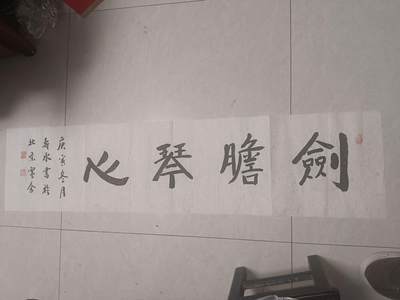 劍膽琴心
庚寅冬月
書於
北京寓舍